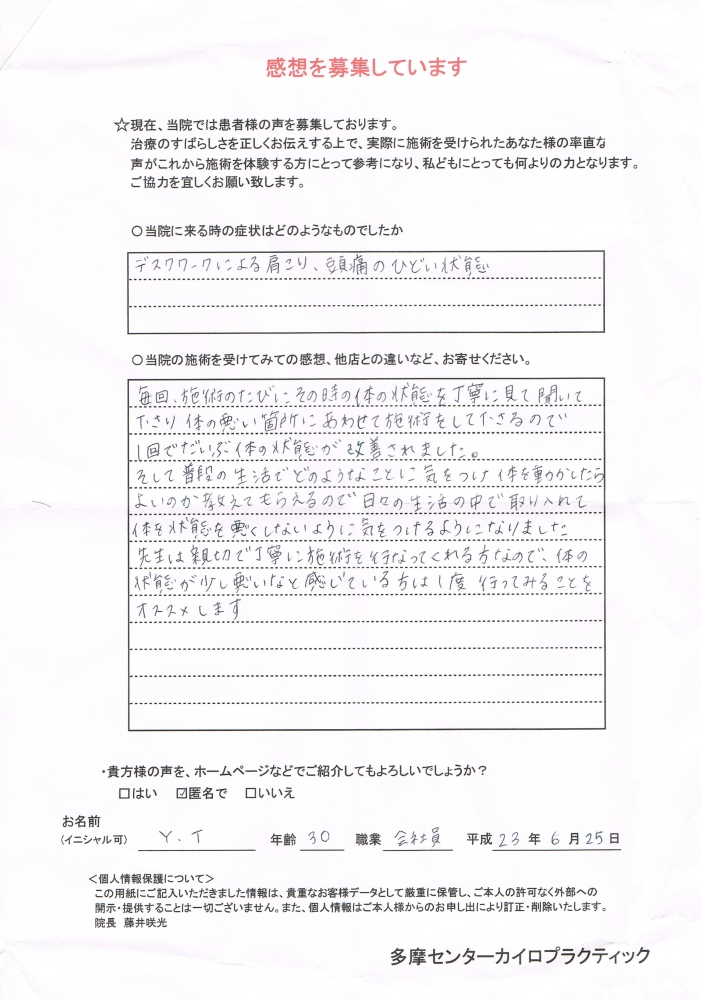 感想を募集しています
☆現在、当院では患者様の声を募集しております。
治療のすばらしさを正しくお伝えする上で、実際に施術を受けられたあなた様の率直な
声がこれから施術を体験する方にとって参考になり、私どもにとっても何よりの力となります。
ご協力を宜しくお願い致します。
○当院に来る時の症状はどのようなものでしたか
デスクワークによる肩こり、頭痛のひどい状態
○当院の施術を受けてみての感想、他店との違いなど、お寄せください。
毎回、施術のたびにその時の体の状態を丁寧に見て聞いて
下さり体の悪い箇所にあわせて施術をして下さるので
1回でだいぶ体の状態が改善されました。
そして普段の生活でどのようなことに気をつけ体を動かしたら
よいのか教えてもらえるので日々の生活の中で取り入れて
体を状態を悪くしないように気をつけるようになりました
先生は親切で丁寧に施術を行なってくれる方なので、体の
状態が少し悪いなと感じている方は1度行ってみることを
オススメします
・貴方様の声を、ホームページなどでご紹介してもよろしいでしょうか？
□はい ☑匿名で □いいえ
お名前
(イニシャル可) Y.T 年齢 30 職業 会社員 平成 23 年 6 月 25 日
＜個人情報保護について＞
この用紙にご記入いただきました情報は、貴重なお客様データとして厳重に保管し、ご本人の許可なく外部への
開示・提供することは一切ございません。また、個人情報はご本人様からのお申し出により訂正・削除いたします。
院長 藤井咲光
多摩センターカイロプラクティック